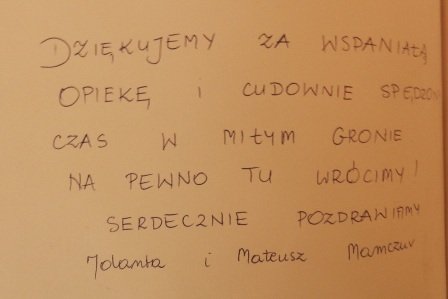 DZIĘKUJEMY ZA WSPANIAŁĄ
OPIEKĘ I CUDOWNIE SPĘDZON
CZAS W MIŁYM GRONIE
NA PEWNO TU WRÓCIMY!
SERDECZNIE POZDRAWIAMY
Jolanta i Mateusz Mamczur